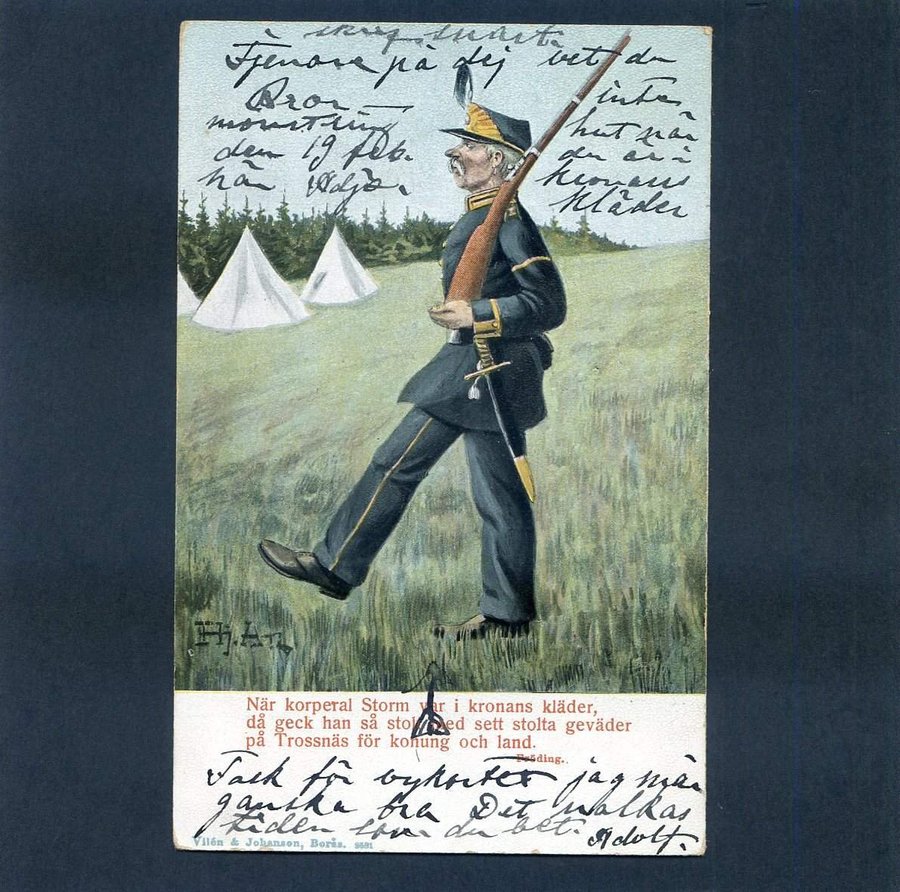 skrif snart.
Tjenare på dej vet du
Bror
inte
mönstring
hut när
den 19 feb.
du är i
här Adjö.
kronans
kläder
Hj. An.
När korperal Storm var i kronans kläder,
då geck han så stolt med sett stolta geväder
på Trossnäs för konung och land.
Fröding.
Tack för vykortet jag mår
ganska bra Det nalkas
tiden som du vet.
Adolf.
Vilén & Johanson, Borås.